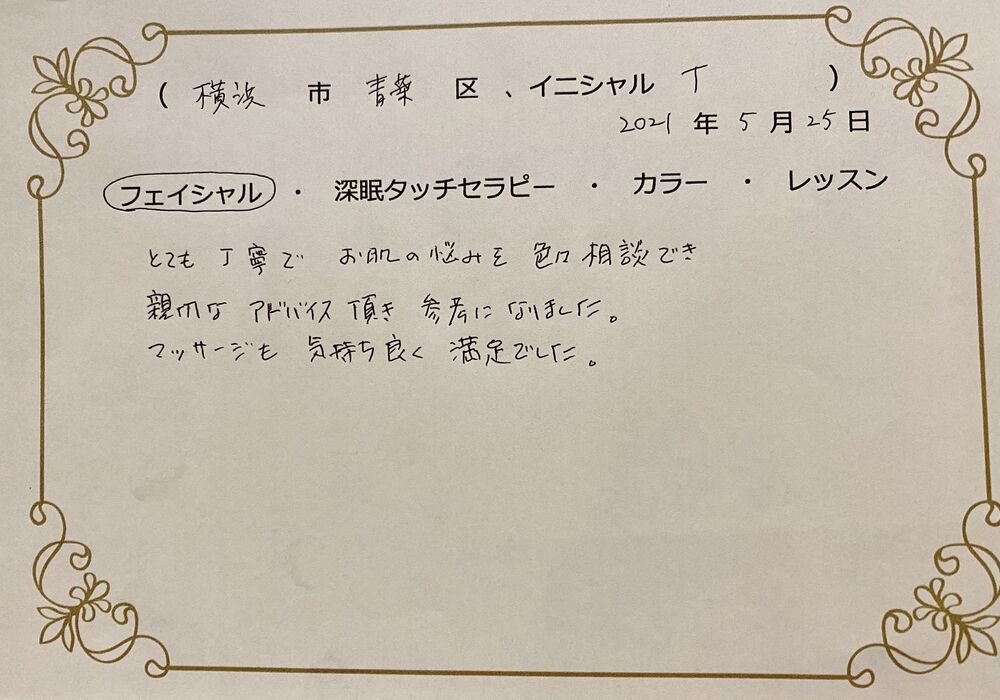 ( 横浜 市 青葉 区 、イニシャル T )
2021 年 5 月 25 日
フェイシャル ・ 深眠タッチセラピー ・ カラー ・ レッスン
とても 丁寧で お肌の悩みを 色々 相談でき
親切な アドバイス 頂き 参考に なりました。
マッサージも 気持ち良く 満足でした。